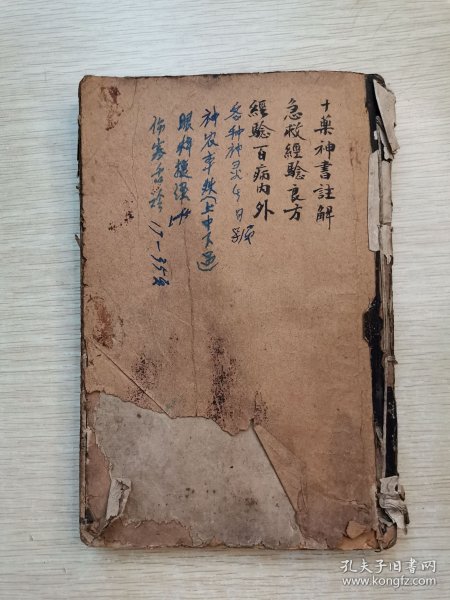 十藥神書註解
急救經驗良方
經驗百病內外
各种神灵今日
神农本经(上中下通)
眼科捷
伤寒舌
17—35
孔夫子旧书网
www.kongfz.com